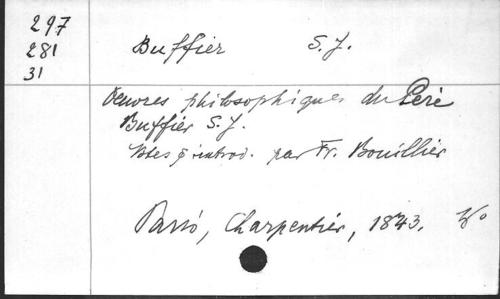 297
281
31
Buffier S.J.
Oeuvres philosophiques du Père
Buffier S.J.
Notes & introd. par Fr. Bouillier
Paris, Charpentier, 1843.